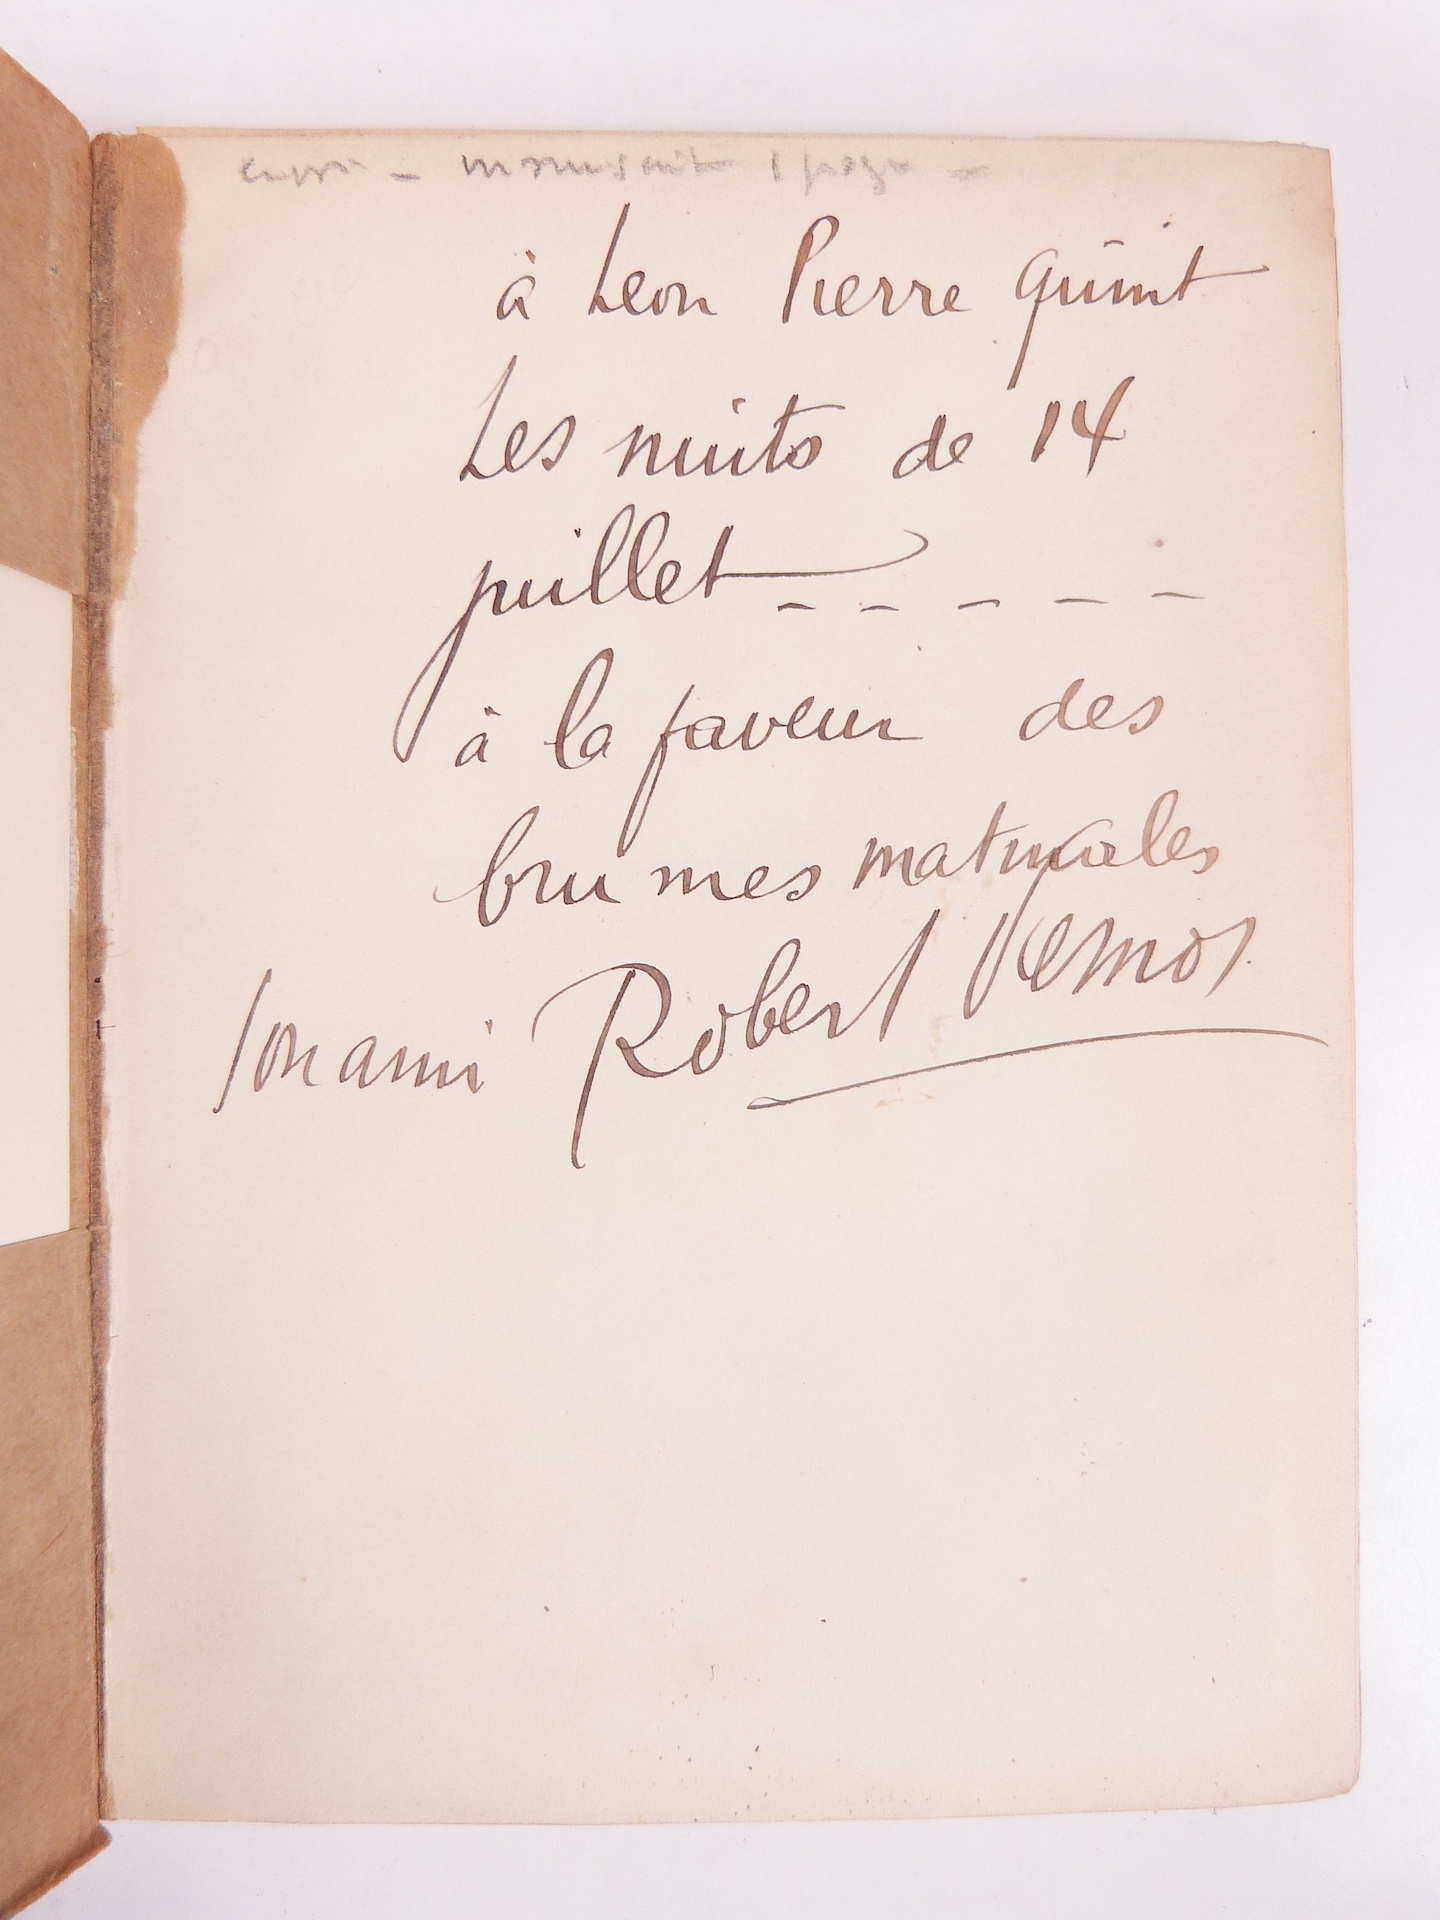 manuscrit 1 page -
à Leon Pierre Quint
Les nuits de 14
juillet _ _ _ _ _
à la faveur des
brumes matinales
Son ami Robert Desnos